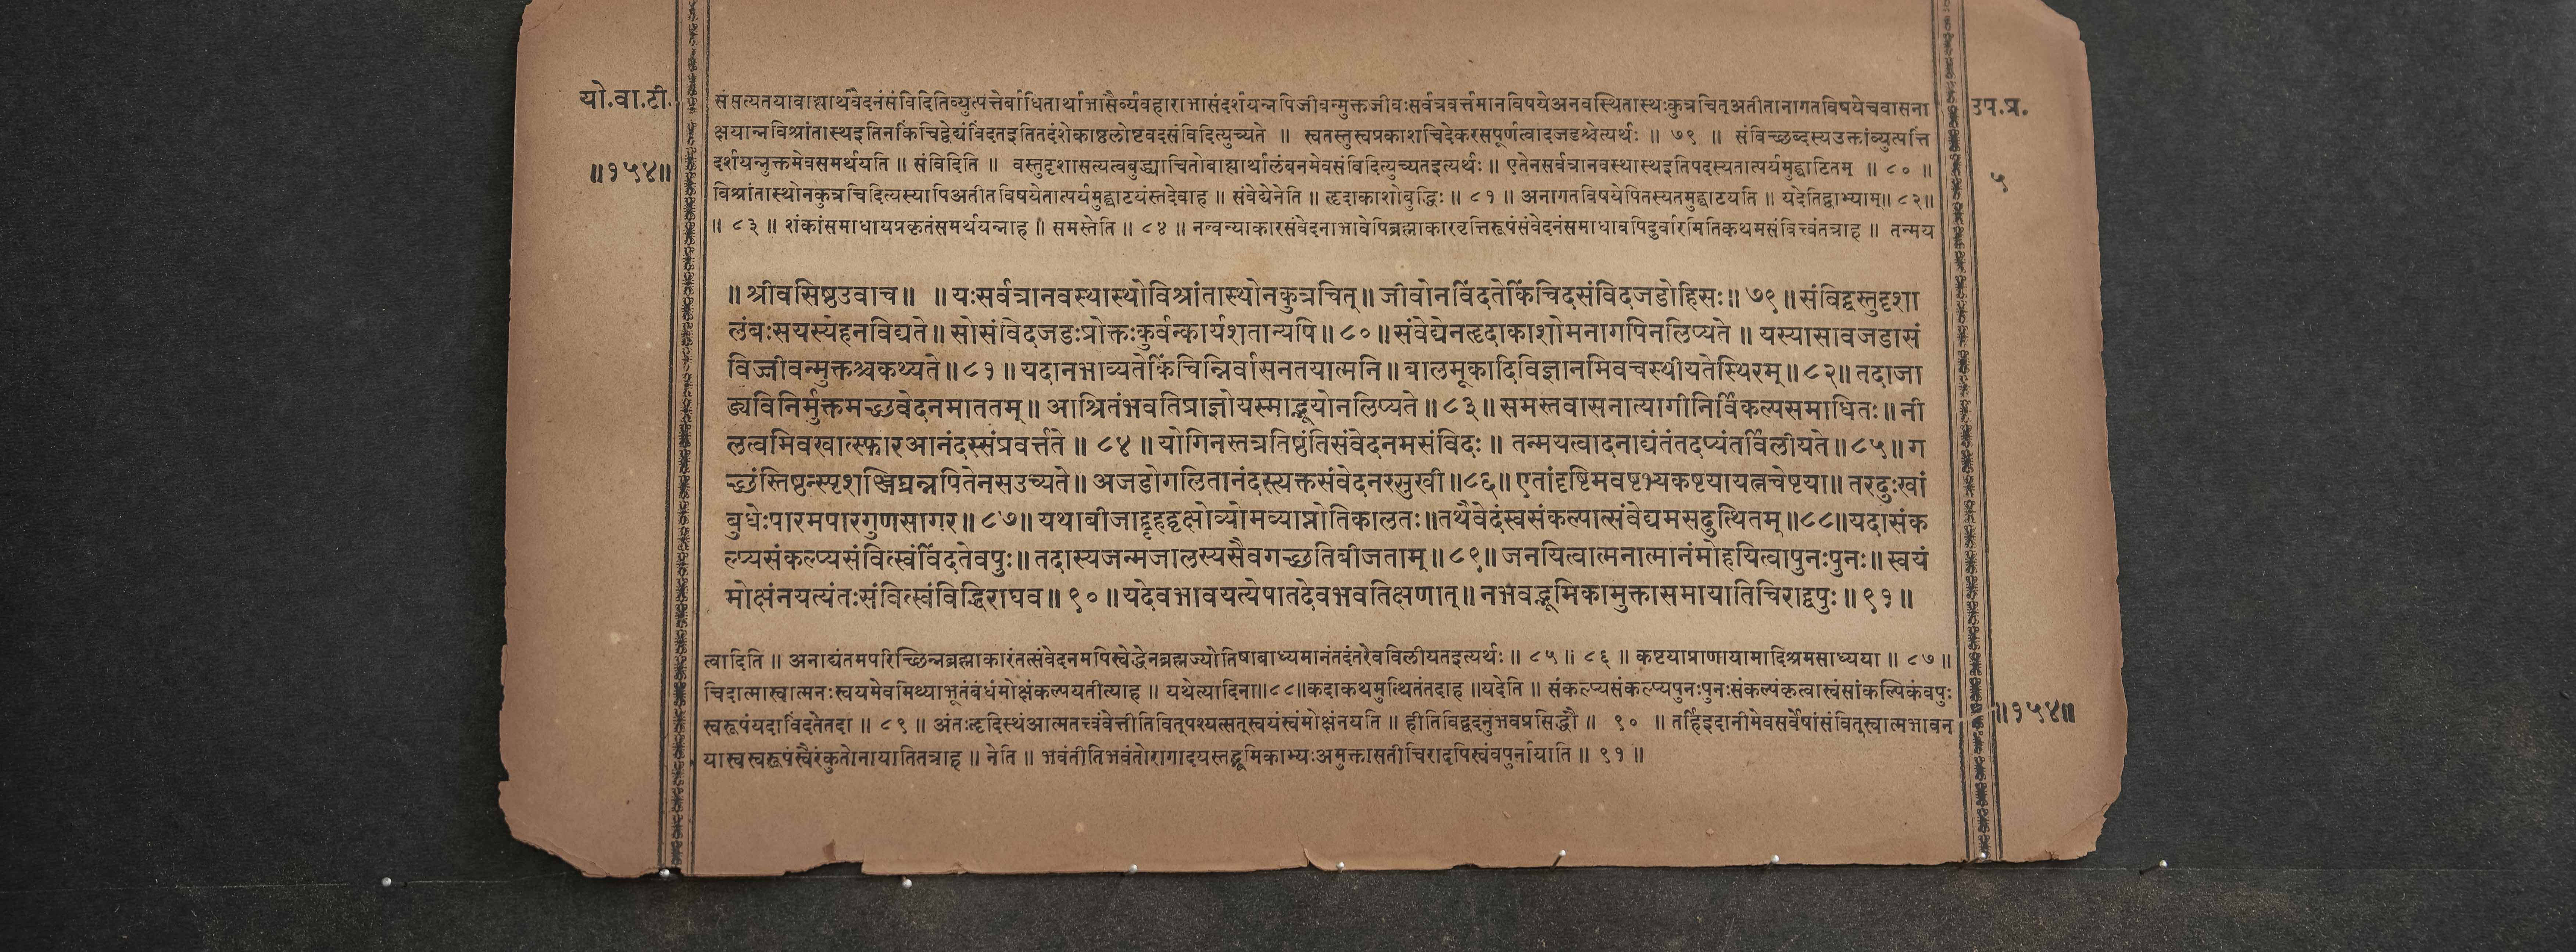 यो.वा.टी.
॥१५४॥
उप.प्र.
५
संसत्यतयाबाह्यार्थवेदनंसंविदितिव्युत्पत्तेर्बाधितार्थाभासैर्व्यवहाराभासंदर्शयन्नपिजीवन्मुक्तजीवःसर्वत्रवर्त्तमानविषयेअनवस्थितास्थःकुत्रचित्अतीतानागतविषयेचवासना
क्षयान्नविश्रांतास्थइतिनकिंचिद्वेद्यंविंदतइतितदंशेकाष्ठलोष्टवदसंविदित्युच्यते ॥ स्वतस्तुस्वप्रकाशचिदेकरसपूर्णत्वादजडश्चेत्यर्थः ॥ ७९ ॥ संविच्छब्दस्यउक्तांव्युत्पत्तिं
दर्शयन्नुक्तमेवसमर्थयति ॥ संविदिति ॥ वस्तुदृशासत्यत्वबुद्ध्याचितोबाह्यार्थालंबनमेवसंविदित्युच्यतइत्यर्थः ॥ एतेनसर्वत्रानवस्थास्थइतिपदस्यतात्पर्यमुद्घाटितम् ॥ ८० ॥
विश्रांतास्थोनकुत्रचिदित्यस्यापिअतीतविषयेतात्पर्यमुद्घाटयंस्तदेवाह ॥ संवेद्येनेति ॥ हृदाकाशोबुद्धिः ॥ ८१ ॥ अनागतविषयेपितस्यतमुद्घाटयति ॥ यदेतिद्वाभ्याम्॥ ८२॥
॥ ८३ ॥ शंकांसमाधायप्रकृतंसमर्थयन्नाह ॥ समस्तेति ॥ ८४ ॥ नन्वन्याकारसंवेदनाभावेपिब्रह्माकारवृत्तिरूपंसंवेदनंसमाधावपिदुर्वारमितिकथमसंवित्त्वंतत्राह ॥ तन्मय
॥ श्रीवसिष्ठउवाच॥ ॥ यःसर्वत्रानवस्थास्थोविश्रांतास्थोनकुत्रचित्॥ जीवोनविंदतेकिंचिदसंविदजडोहिसः॥ ७९॥ संविद्वस्तुदृशा
लंबःसयस्येहनविद्यते॥ सोसंविदजडःप्रोक्तःकुर्वन्कार्यशतान्यपि॥ ८०॥ संवेद्येनहृदाकाशोमनागपिनलिप्यते ॥ यस्यासावजडासं
विज्जीवन्मुक्तश्चकथ्यते॥ ८१ ॥ यदानभाव्यतेकिंचिन्निर्वासनतयात्मनि॥ बालमूकादिविज्ञानमिवचस्थीयतेस्थिरम्॥ ८२॥ तदाजा
ड्यविनिर्मुक्तमच्छवेदनमाततम्॥ आश्रितंभवतिप्राज्ञोयस्माद्भूयोनलिप्यते॥ ८३॥ समस्तवासनात्यागीनिर्विकल्पसमाधितः॥ नी
लत्वमिवखात्स्फारआनंदस्संप्रवर्त्तते॥ ८४ ॥ योगिनस्तत्रतिष्ठंतिसंवेदनमसंविदः॥ तन्मयत्वादनाद्यंतंतदप्यंतर्विलीयते॥ ८५॥ ग
च्छंस्तिष्ठन्स्पृशञ्जिघ्रन्नपितेनसउच्यते॥ अजडोगलितानंदस्त्यक्तसंवेदनस्सुखी॥८६॥ एतांदृष्टिमवष्टभ्यकष्टयायत्नचेष्टया॥ तरदुःखां
बुधेःपारमपारगुणसागर॥ ८७॥ यथाबीजाद्बृहद्वृक्षोव्योमव्याप्नोतिकालतः॥तथैवेदंस्वसंकल्पात्संवेद्यमसदुत्थितम्॥८८॥यदासंक
ल्प्यसंकल्प्यसंवित्स्वंविंदतेवपुः॥ तदास्यजन्मजालस्यसैवगच्छतिबीजताम्॥ ८९॥ जनयित्वात्मनात्मानंमोहयित्वापुनःपुनः॥ स्वयं
मोक्षंनयत्यंतःसंवित्स्वंविद्धिराघव॥ ९०॥ यदेवभावयत्येषातदेवभवतिक्षणात्॥ नभवद्भूमिकामुक्तासमायातिचिराद्वपुः॥ ९१॥
त्वादिति ॥ अनाद्यंतमपरिच्छिन्नब्रह्माकारंतत्संवेदनमपिस्वेद्धेनब्रह्मज्योतिषाबाध्यमानंतदंतरेवविलीयतइत्यर्थः ॥ ८५॥ ८६ ॥ कष्टयाप्राणायामादिश्रमसाध्यया ॥ ८७॥
चिदात्मास्वात्मनःस्वयमेवमिथ्याभूतंबंधंमोक्षंकल्पयतीत्याह ॥ यथेत्यादिना॥८८॥कदाकथमुत्थितंतदाह ॥यदेति ॥ संकल्प्यसंकल्प्यपुनःपुनःसंकल्पंकृत्वास्वंसांकल्पिकंवपुः
स्वरूपंयदाविंदतेतदा ॥ ८९ ॥ अंतःहृदिस्थंआत्मतत्त्वंवेत्तीतिवित्पश्यत्सत्स्वयंस्वंमोक्षंनयति ॥ हीतिविद्वदनुभवप्रसिद्धौ ॥ ९० ॥ तर्हिइदानीमेवसर्वेषांसंवित्स्वात्मभावन
यास्वस्वरूपंस्वैरंकुतोनायातितत्राह ॥ नेति ॥ भवंतीतिभवंतोरागादयस्तद्भूमिकाभ्यःअमुक्तासतीचिरादपिस्वंवपुर्नायाति ॥ ९१ ॥
॥१५४॥